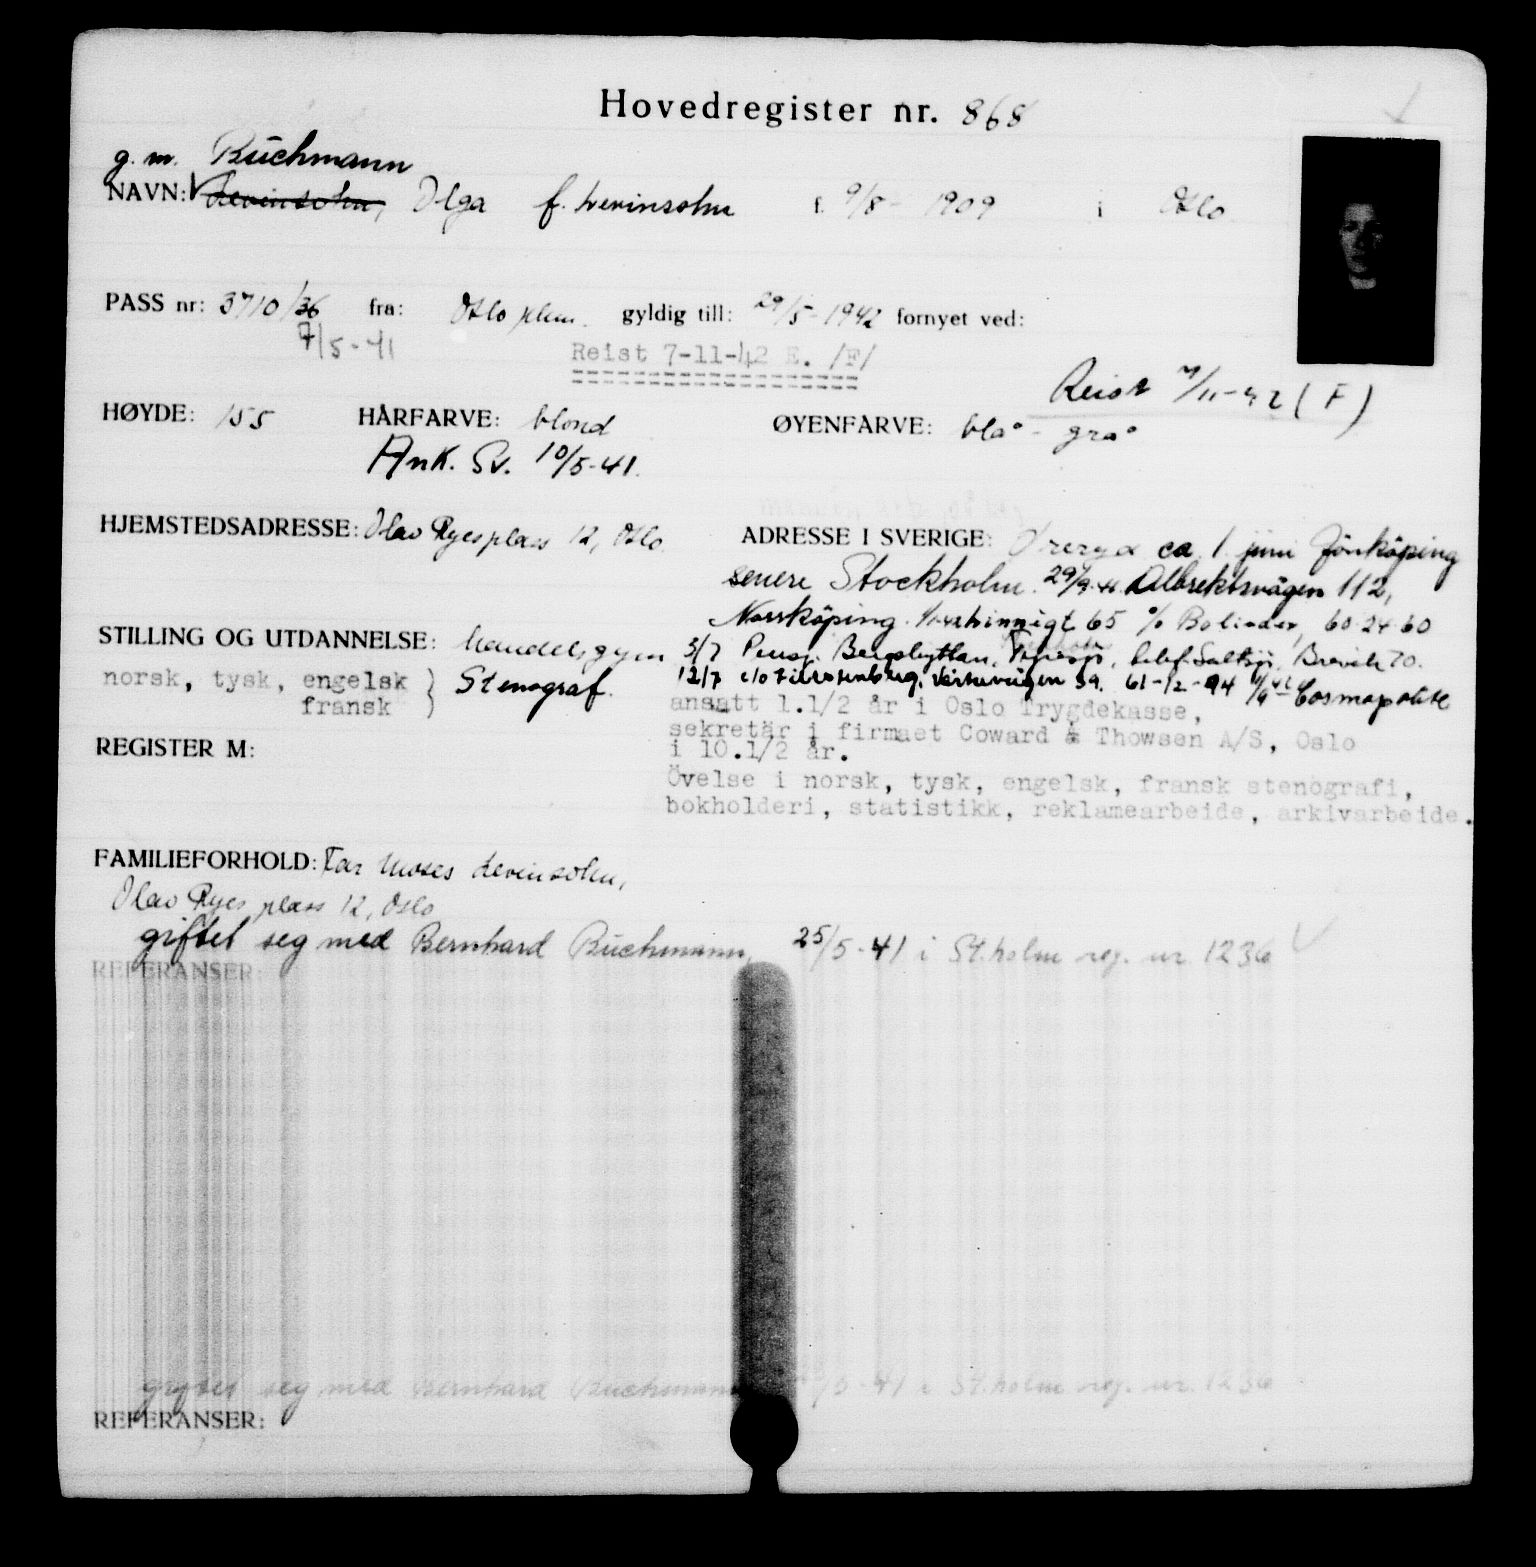 Hovedregister nr. 868
g. m. Buchmann
NAVN: Levinsohn, Olga f. Levinsohn f. 9/8 - 1909 i Oslo
PASS nr: 3710/36 fra: Oslo gyldig till: 29/5-1942 fornyet ved:
7/5-41
Reist 7-11-42 E. /F/
Reist 7/11-42 (F)
HØYDE: 155 HÅRFARVE: blond ØYENFARVE: blå - grå
Ank. Sv. 10/5-41.
HJEMSTEDSADRESSE: Olav Ryes plass 12, Oslo ADRESSE I SVERIGE: Öreryd ca 1. juni Jönköping
senere Stockholm. 29/9-41. Albrektsvägen 112,
Norrköping. 65 c/o Bolinder, 60 24 60
STILLING OG UTDANNELSE: Handelsgym 3/7 Pens. Bergshyttan, telef. Saltsjö, Brevik 70.
norsk, tysk, engelsk } Stenograf. 12/7 c/o 59. 61-12-94 Cosmopolite
fransk
ansatt 1.1/2 år i Oslo Trygdekasse,
sekretär i firmaet Coward & Thowsen A/S, Oslo
REGISTER M: i 10.1/2 år.
Övelse i norsk, tysk, engelsk, fransk stenografi,
bokholderi, statistikk, reklamearbeide, arkivarbeide.
FAMILIEFORHOLD: Far Moses Levinsohn,
Olav Ryes plass 12, Oslo
giftet seg med Bernhard Buchmann, 25/5-41 i St.holm reg. nr. 1236
REFERANSER:
giftet seg med Bernhard Buchmann /5-41 i St.holm reg. nr. 1236
REFERANSER: